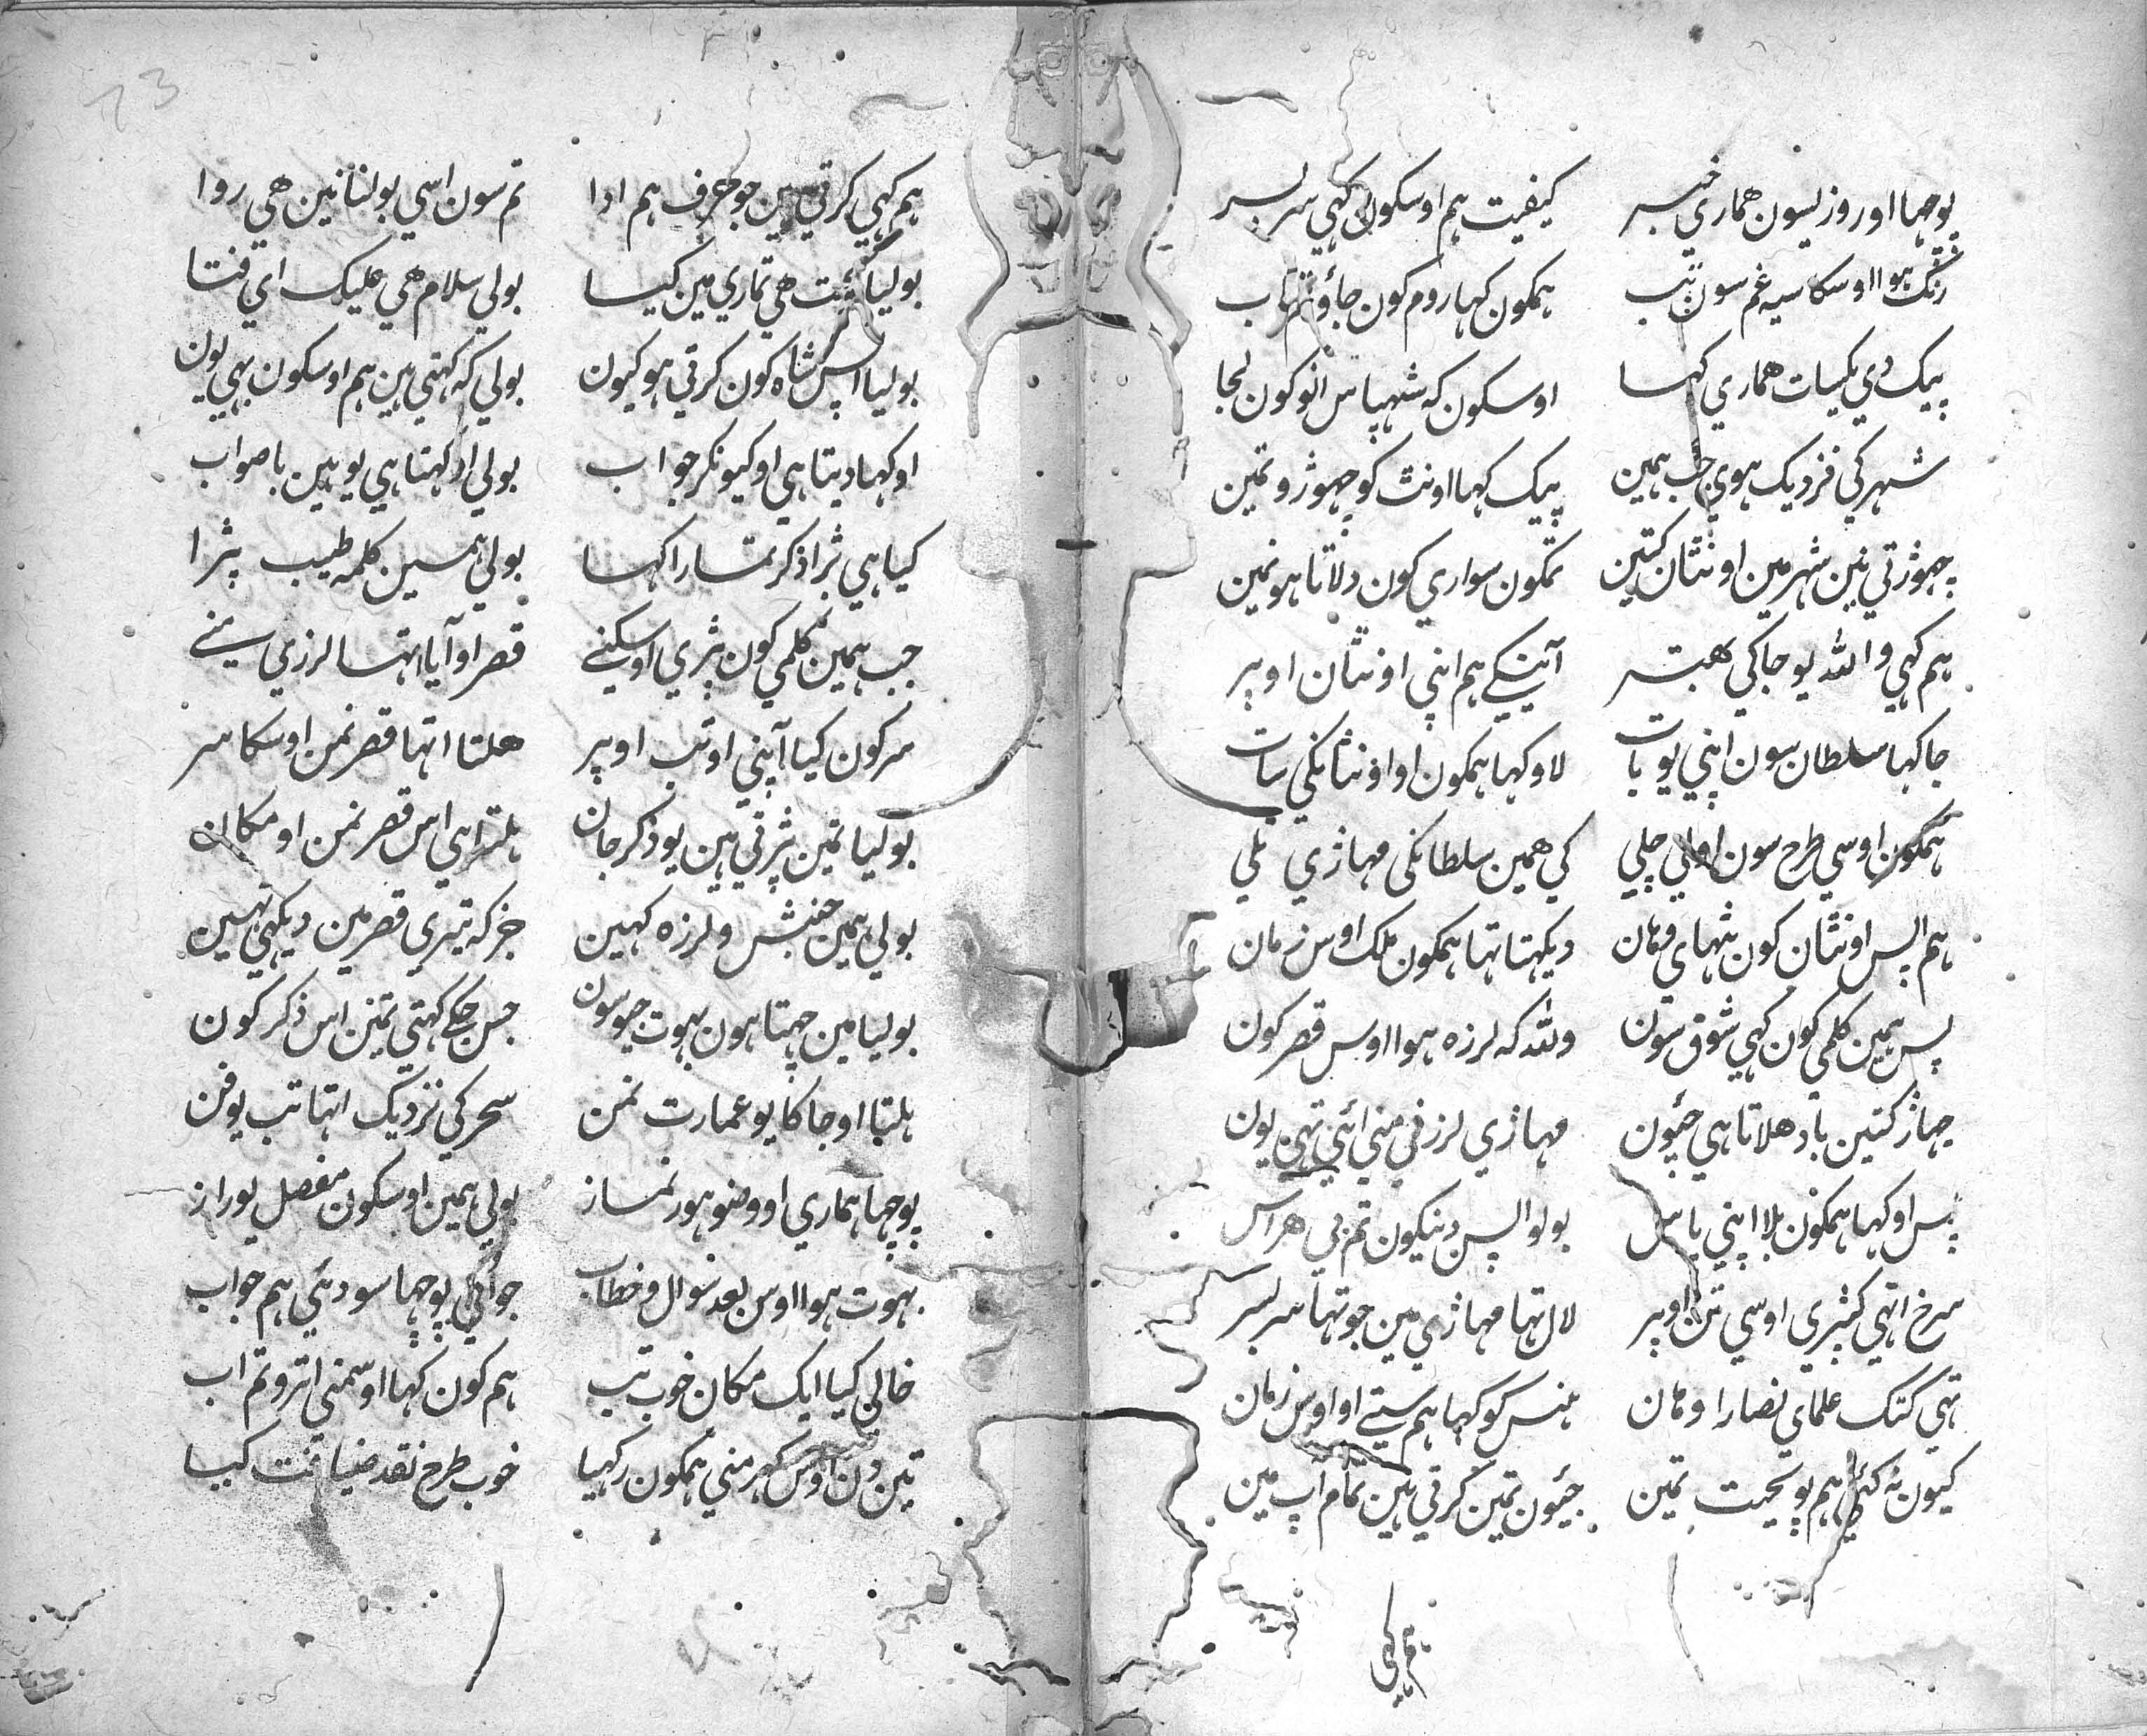 پوچھا او روز یسون هماري خبر کیفیت ہم اوسکون کہي سر بسر
رنگ ہوا اوسکا سیہ غم سون تب ہمکون کہا روم کون جاؤ تم اب
پیک دي یکسات هماري کہا اوسکون کہ شہپاس انو کون لجا
شہر کي نزدیک ہوي جب ہمین پیک کہا اونٹ کو چہوڑو تمین
چہوڑتي نین شہر مین اونٹان کتین تمکون سواري کون دلاتا ہونمین
ہم کہي واللہ یو جاکي بهتر آئینگے ہم اپني اونٹان اوپر
جا کہا سلطان سون اپني یو بات لاو کہا ہمکون او اونٹانکي سات
ہمکون اوسي طرح سون اولي چلي کي همین سلطانکي مہاڑي تلي
ہم اپس اونٹان کون بٹهاي وہان دیکہتا تہا ہمکون ملک اوس زمان
پس ہمین کلمي کون کہي شوق سون وللہ کہ لرزہ ہوا اوس قصر کون
جہاڑ کتین باد هلاتا ہي جئیون مہاڑي لرزني مني ائي تهي یون
پس او کہا ہمکون بلا اپني پاس بولو اپس دینکون تم بي هراس
سرخ اتهي کپڑي اوسي تن اوپر لال تہا مہاڑي مین جو تہا سر بسر
تہي کتک علماي نصارا وہان ہنس کو کہا ہم ستے او اوس زمان
کیون نہ کئے ہم پو تحیت تمین جئیون تمین کرتي ہین تمام آپ مین
ہم کہي
73
ہم کہي کرتي ہین جو حرف ہم ادا تم سون اسي بولنا نین هي روا
بولیا تحیت هي تماري مین کیسا بولي سلام هي علیک اي فتا
بولیا اپس شاہ کون کرتي ہو کیون بولي کہ کہتي ہین ہم اوسکون بہي یون
او کہا دیتا ہي او کیونکر جواب بولي او کہتا ہي یوہین با صواب
کیا ہي بڑا ذکر تمسارا کہا بولي ہمین کلمہ طیب پڑا
جب ہمین کلمي کون پڑي اوسکنے قصر او آیا اتہا لرزي منے
سر کون کیا آپني او تب اوپر هلتا اتہا قصر نمن اوسکا سر
بولیا تمین پڑتي ہین یو ذکر جان ہلتا ہي اس قصر نمن او مکان
بولي ہمین جنبش و لرزہ کہین جز کہ تیري قصر مین دیکہي نہین
بولیا مین چہتا ہون بہوت جیو سون جس جگے کہتي تمین اس ذکر کون
ہلتا او جاکا یو عمارت نمن سحر کي نزدیک اتہا تب یو فن
پوچہا ہماري او وضو ہور نماز بولي ہمین اوسکون مفصل یو راز
بہوت ہوا اوس بعد سوال و خطاب جو اگي پوچہا سو دئي ہم جواب
خالي کیا ایک مکان خوب تب ہم کون کہا اوسمني اترو تم اب
تین دن اوس گہر مني ہمکون رکہیا خوب طرح نقد ضیافت کیا